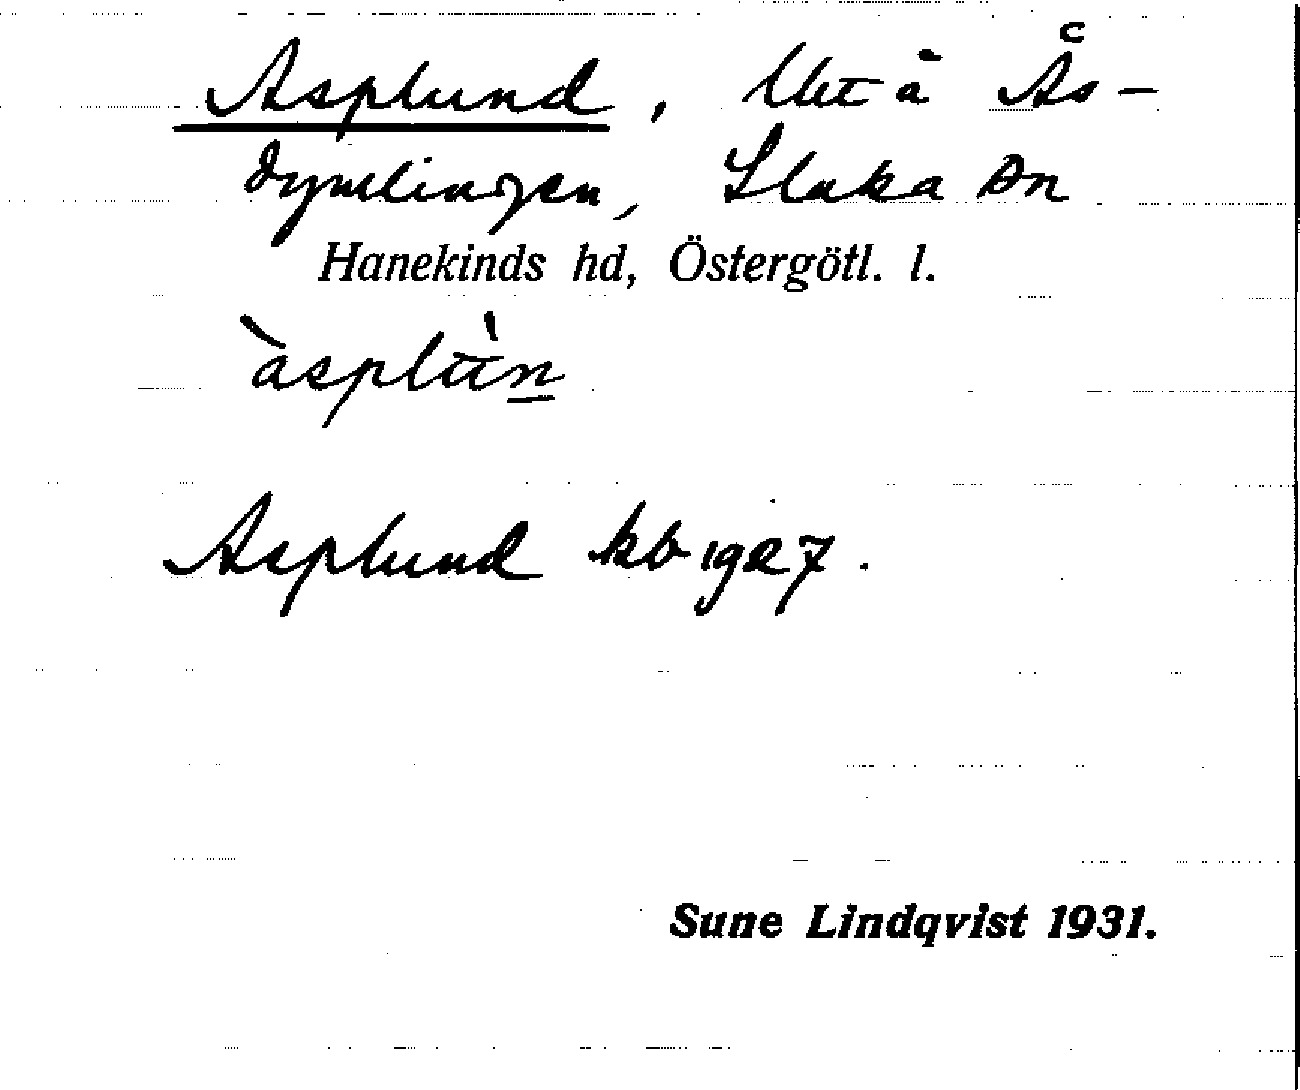 Asplund, Utä å Ås-
dymlingen, Slaka sn
Hanekinds hd, Östergötl. l.
àspltt̀n
Asplund kb 1927.
Sune Lindqvist 1931.